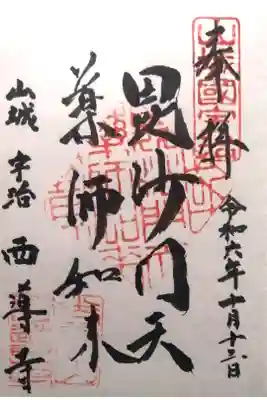 奉拝
令和六年十月十三日
毘沙門天
薬師如来
山城 宇治 西尊寺